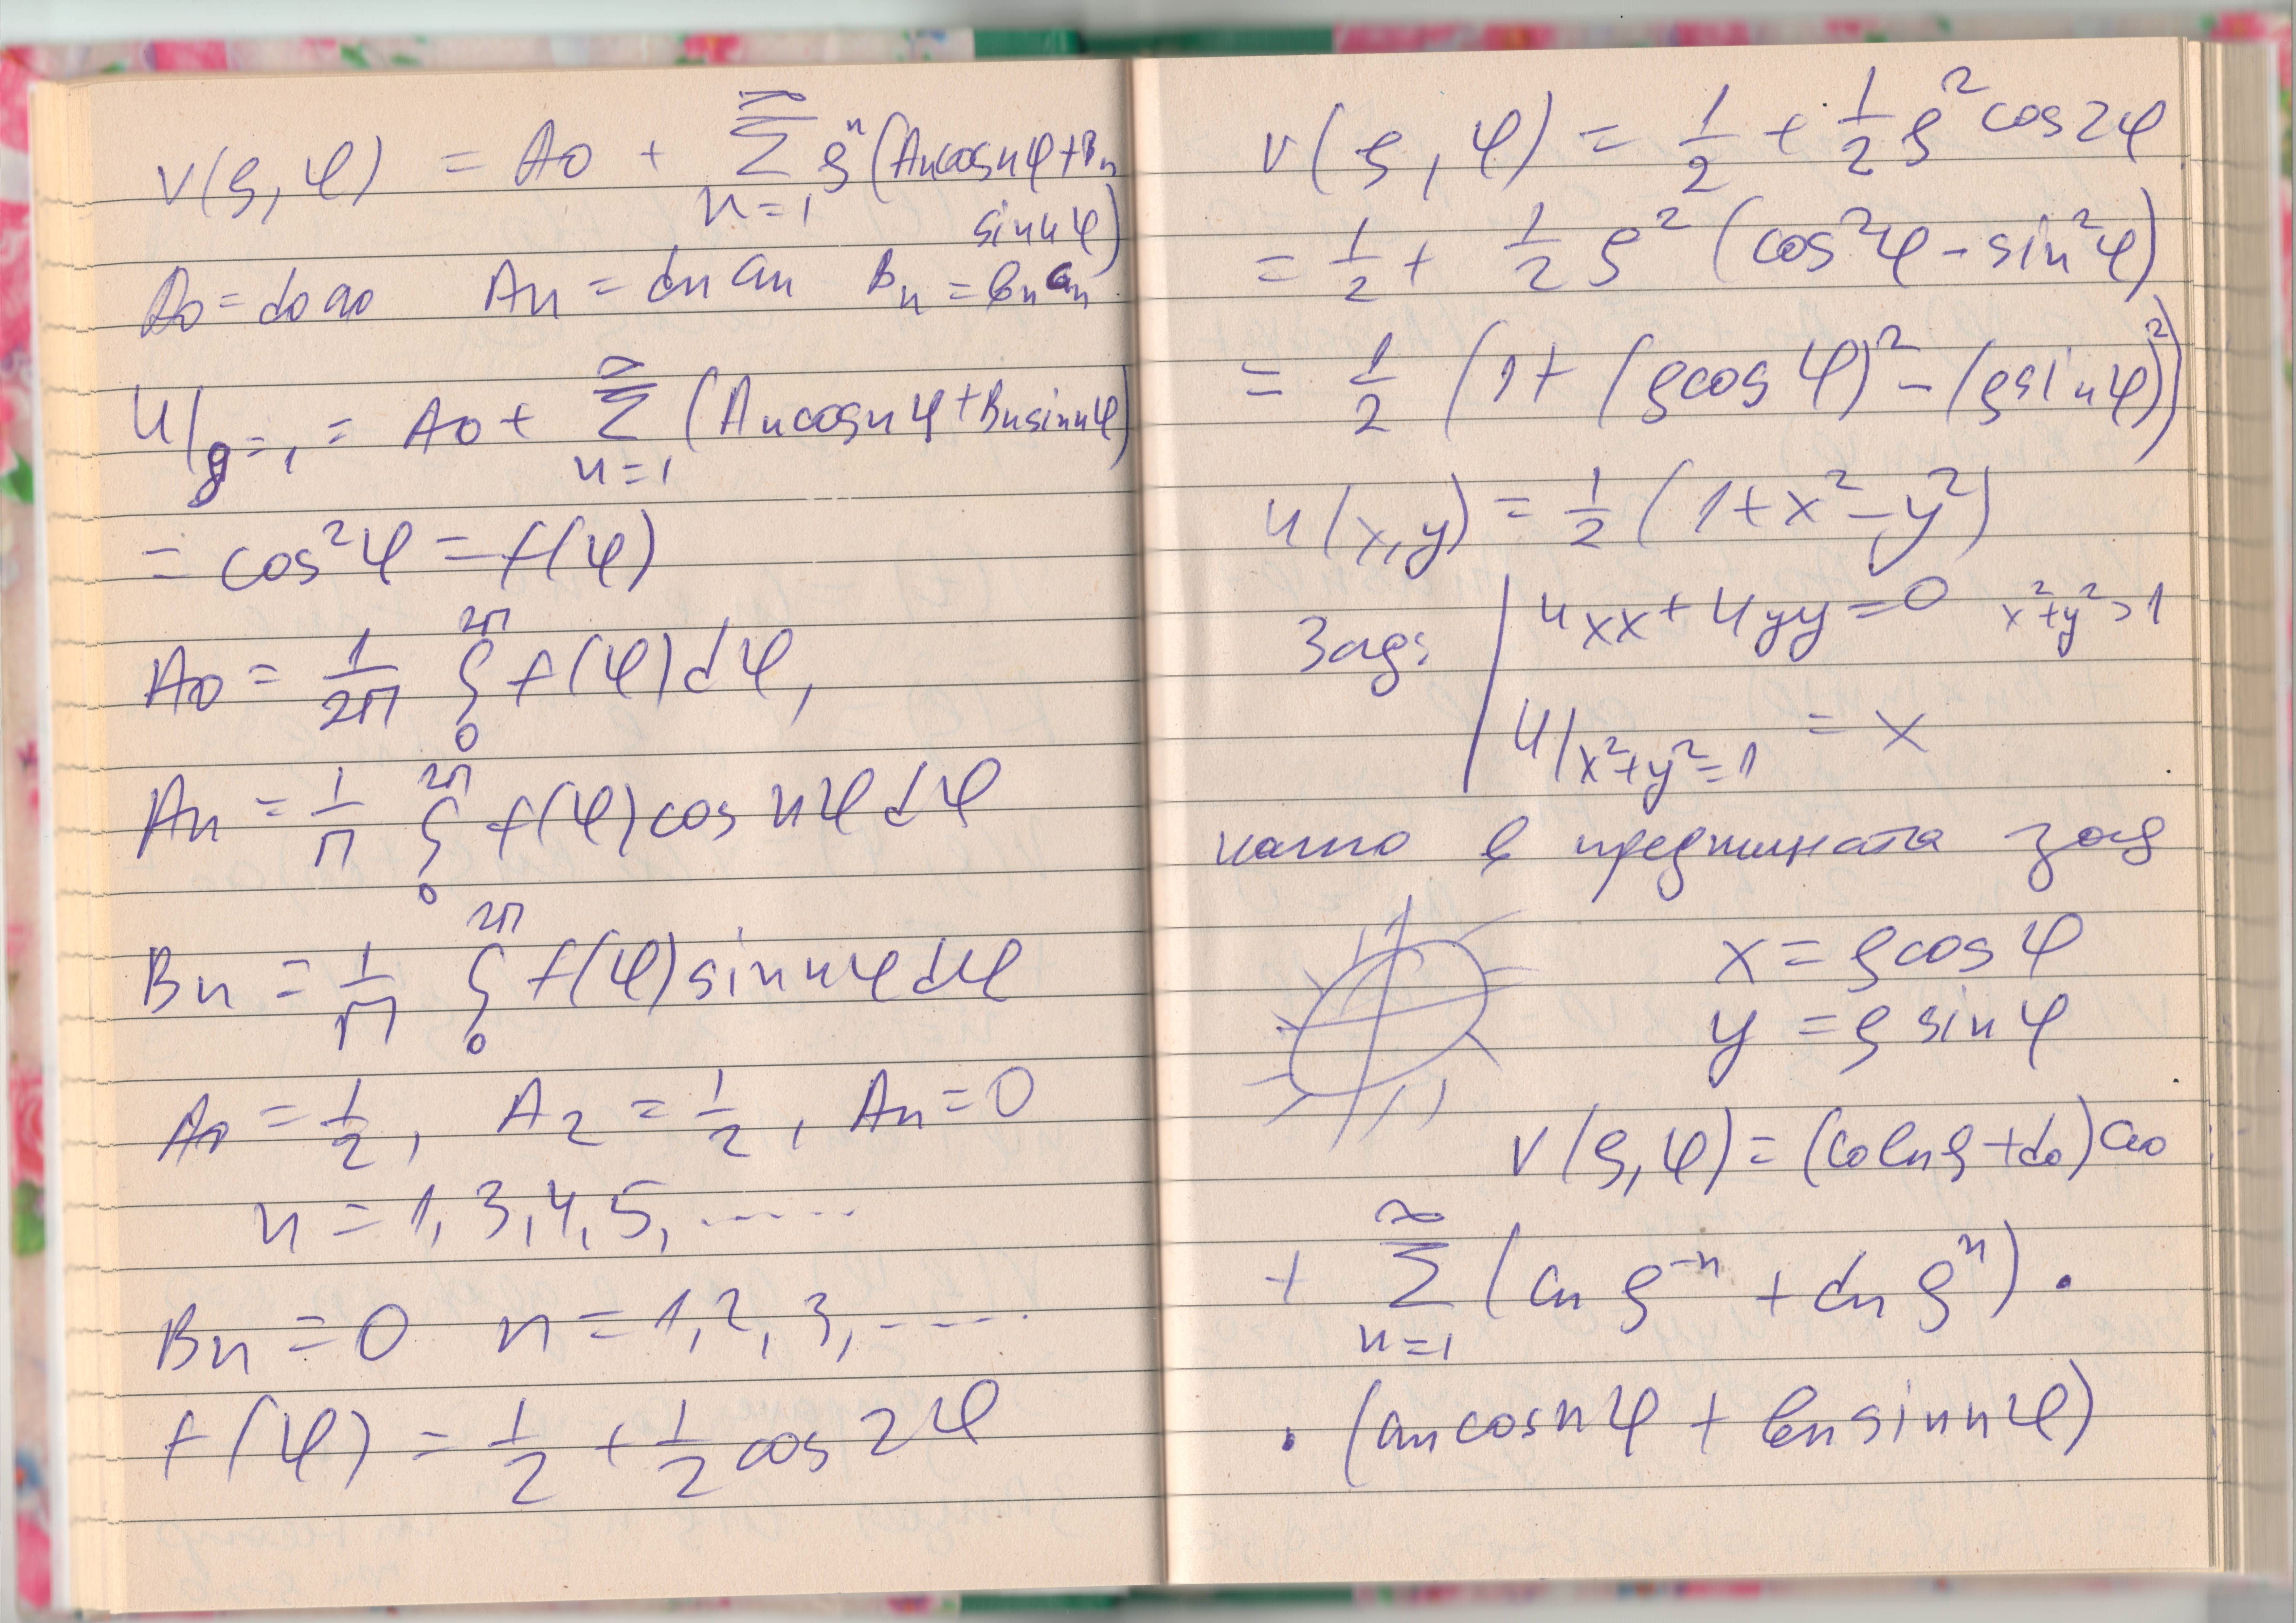 v(ρ, φ) = A0 + ∞ Σ n=1 ρ^n (An cos nφ + Bn
sin nφ)
A0 = d0 a0   An = dn an   Bn = bn
u|ρ=1 = A0 + ∞ Σ n=1 (An cos nφ + Bn sin nφ)
= cos²φ = f(φ)
A0 = 1/2π ∫0^2π f(φ) dφ,
An = 1/π ∫0^2π f(φ) cos nφ dφ
Bn = 1/π ∫0^2π f(φ) sin nφ dφ
A0 = 1/2, A2 = 1/2, An = 0
n = 1, 3, 4, 5, ......
Bn = 0   n = 1, 2, 3, .....
f(φ) = 1/2 + 1/2 cos 2φ
v(ρ, φ) = 1/2 + 1/2 ρ² cos 2φ
= 1/2 + 1/2 ρ² (cos²φ - sin²φ)
= 1/2 (1 + (ρ cos φ)² - (ρ sin φ)²)
u(x, y) = 1/2 (1 + x² - y²)
Зад: | uxx + uyy = 0   x² + y² > 1
u|x²+y²=1 = x
както в предишната зад
x = ρ cos φ
y = ρ sin φ
v(ρ, φ) = (c0 ln ρ + d0) a0
+ ∞ Σ n=1 (cn ρ^-n + dn ρ^n) .
. (an cos nφ + bn sin nφ)